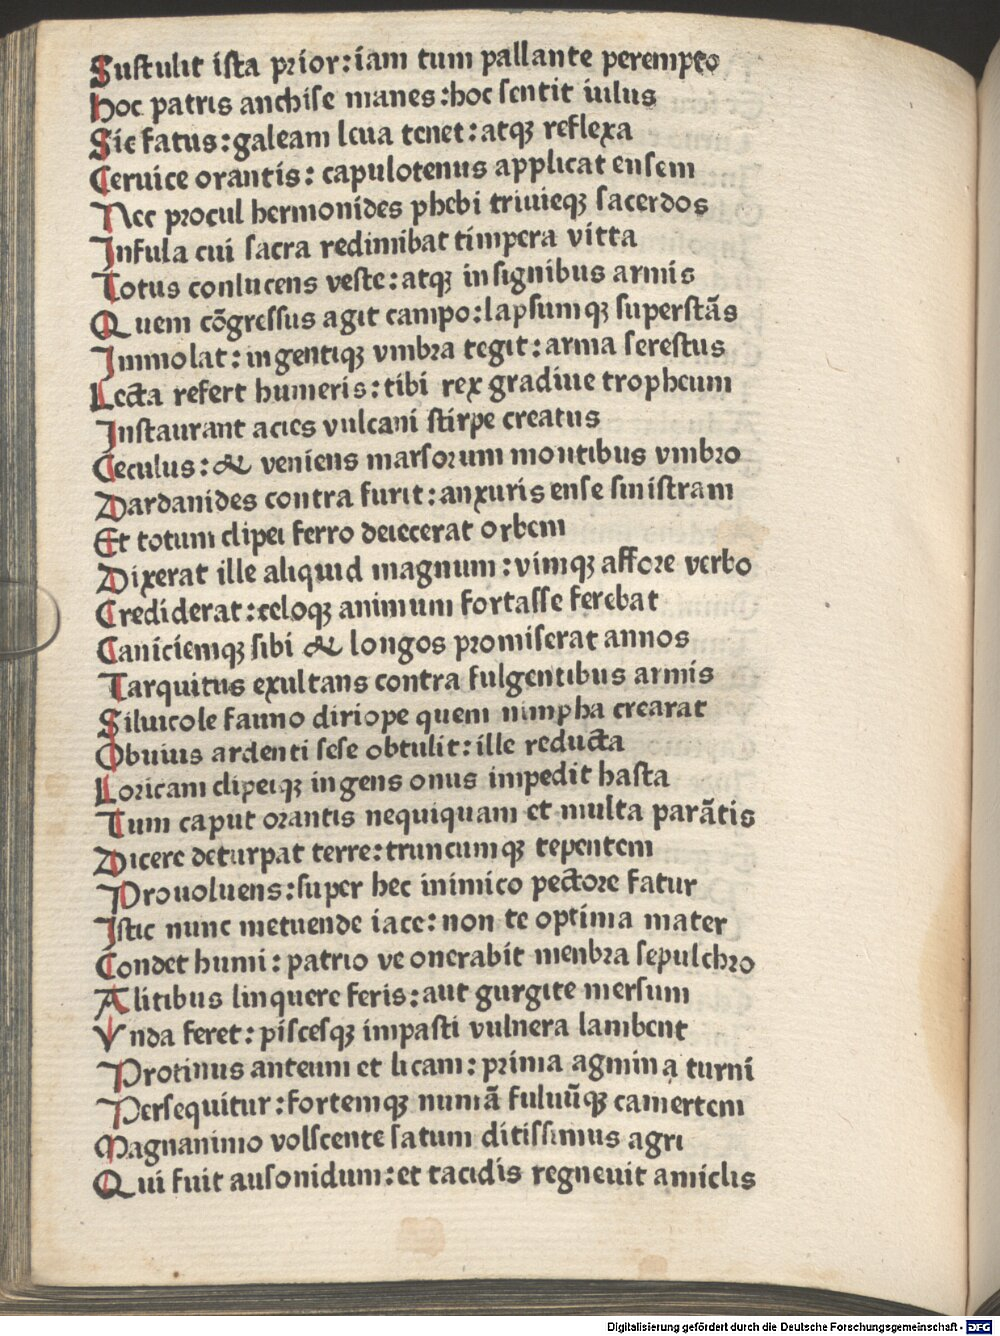 Sustulit ista prior: iam tum pallante perempto
Hoc patris anchise manes: hoc sentit iulus
Sic fatus: galeam leua tenet: atqꝫ reflexa
Ceruice orantis: capulotenus applicat ensem
Nec procul hermonides phebi triuieqꝫ sacerdos
Infula cui sacra redimibat timpera vitta
Totus conlucens veste: atqꝫ insignibus armis
Quem cõgressus agit campo: lapsumqꝫ superstãs
Immolat: ingentiqꝫ vmbra tegit: arma serestus
Lecta refert humeris: tibi rex gradiue tropheum
Instaurant acies vulcani stirpe creatus
Ceculus: & veniens marsorum montibus vmbro
Dardanides contra furit: anxuris ense sinistram
Et totum clipei ferro deiecerat orbem
Dixerat ille aliquid magnum: vimqꝫ affore verbo
Crediderat: celoqꝫ animum fortasse ferebat
Caniciemqꝫ sibi & longos promiserat annos
Tarquitus exultans contra fulgentibus armis
Siluicole fauno diriope quem nimpha crearat
Obuius ardenti sese obtulit: ille reducta
Loricam clipeiqꝫ ingens onus impedit hasta
Tum caput orantis nequiquam et multa parãtis
Dicere deturpat terre: truncumqꝫ tepentem
Prouoluens: super hec inimico pectore fatur
Istic nunc metuende iace: non te optima mater
Condet humi: patrio ve onerabit menbra sepulchro
Alitibus linquere feris: aut gurgite mersum
Vnda feret: piscesqꝫ impasti vulnera lambent
Protinus anteum et licam: prima agmina turni
Persequitur: fortemqꝫ numã fuluũqꝫ camertem
Magnanimo volscente satum ditissimus agri
Qui fuit ausonidum: et tacidis regneuit amiclis
Digitalisierung gefördert durch die Deutsche Forschungsgemeinschaft - DFG